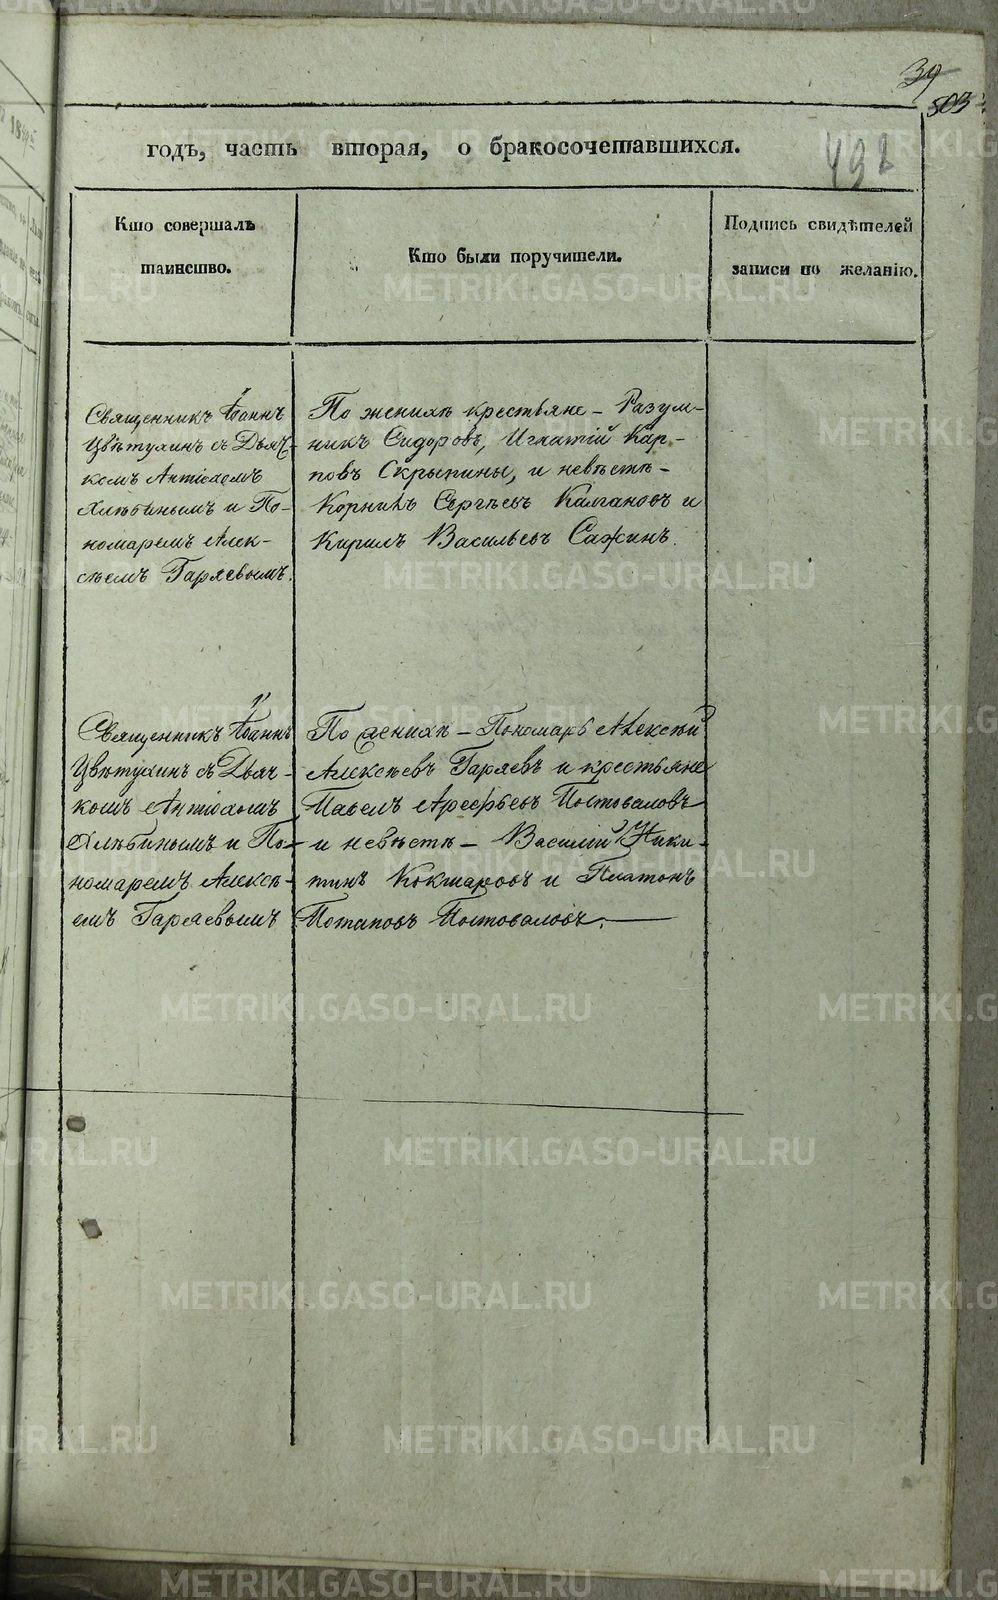 39
503
годъ, часть вторая, о бракосочетавшихся.
492
Кто совершалъ
таинство.
Кто были поручители.
Подпись свидѣтелей
записи по желанію.
Священникъ Іоаннъ
Цвѣтухинъ съ Дьяч-
комъ Антіохомъ
Хлѣбинымъ и По-
номаремъ Алек-
сѣемъ Гаряевымъ.
По женихѣ крестьяне – Разум-
никъ Сидоровъ, Игнатій Кар-
повъ Скрыпины, и невѣстѣ –
Корнилъ Сергѣевъ Калгановъ и
Кирилъ Васильевъ Сажинъ.
Священникъ Іоаннъ
Цвѣтухинъ съ Дьяч-
комъ Антіохомъ
Хлѣбинымъ и По-
номаремъ Алексѣ-
емъ Гаряевымъ
По женихѣ – Пономарь Алексѣй
Алексѣевъ Гаряевъ и крестьяне
Павелъ Арефьевъ Постоваловъ
и невѣстѣ – Василій Ники-
тинъ Кокшаровъ и Платонъ
Потаповъ Постоваловъ.
METRIKI.GASO-URAL.RU